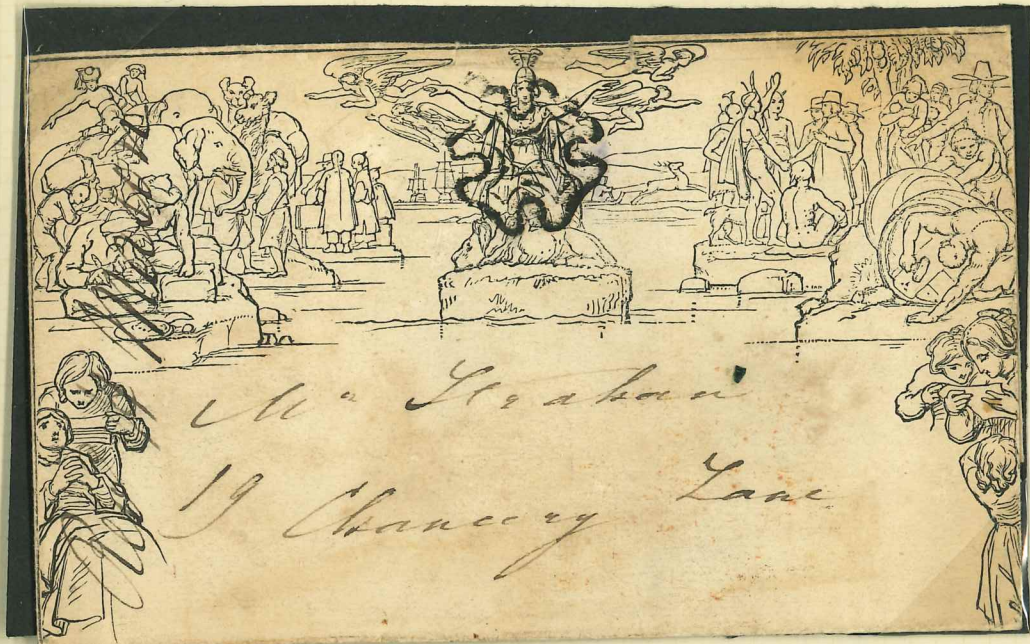 Mr Strahan
19 Chancery Lane